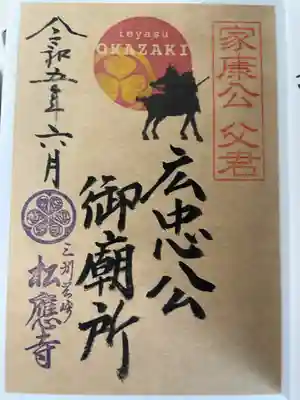 家康公 父君
ieyasu
OKAZAKI
広忠公
御廟所
令和五年六月
三州岡崎
松應寺